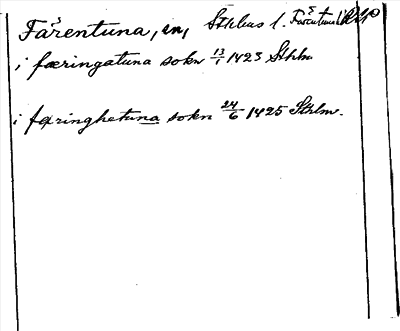 Färentuna, sn, Sthlms l.
i færingatuna sokn 13/1 1423 Sthlm
i færinghetuna sokn 24/6 1425 Sthlm.